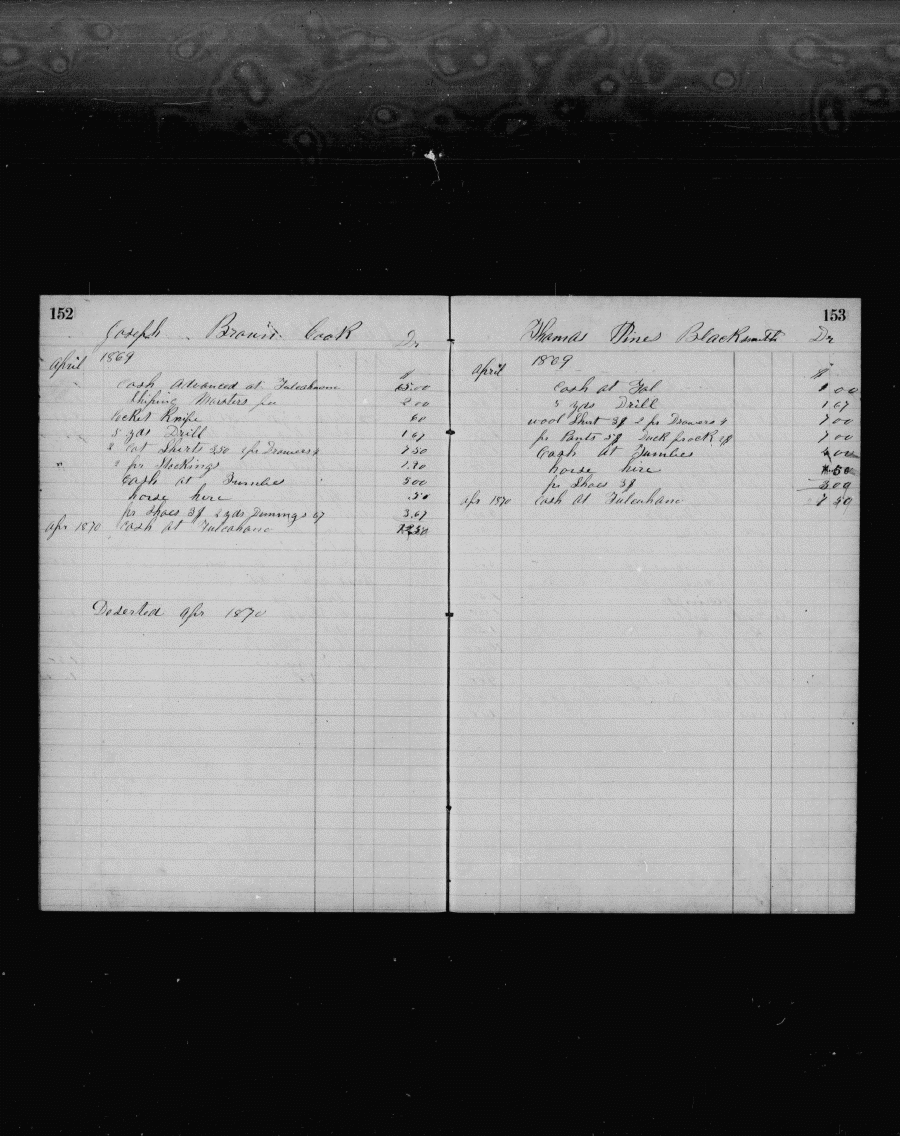 152
Joseph Brown Cook Dr
April 1869
Cash Advanced at Tulcahuano 65.00
Shiping Masters fee 2 00
Pocket Knife 60
5 yds Drill 1 67
2 Cot Shirts 350 2 prs Drawers 4 7 50
2 pr Stockings
Cash at Tumbes 5 00
horse hire .50
pr Shoes 3$ 2 yds Dennings 67 3.67
Apr 1870 Cash at Tulcahano
Deserted Apr 1870
153
Thomas Pines Blacksmith Dr
April 1869
Cash at Tal 00
5 yds Drill 1 67
wool Shirt 3$ 2 prs Drawers 4 7 00
pr Pants 5$ Duck frock 2$ 7 00
Cash at Tumbes
horse hire 50
pr Shoes 3$ 3 00
Apr 1870 Cash at Tulcahano 7 50